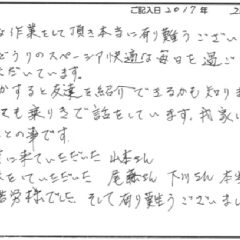 ご記入日 2017年 2
な作業をして頂き本当に有り難うござい
どうりのスペーシア快適な毎日を過ご
ただいています。
かすると友達を紹介できるかも知りま
ても乗りきで話をしています。我家に
との事です。
に来ていただいた 山本さん
をしていただいた 尾藤さん 下川さん 本当
苦労様でした。そして有り難うございまし